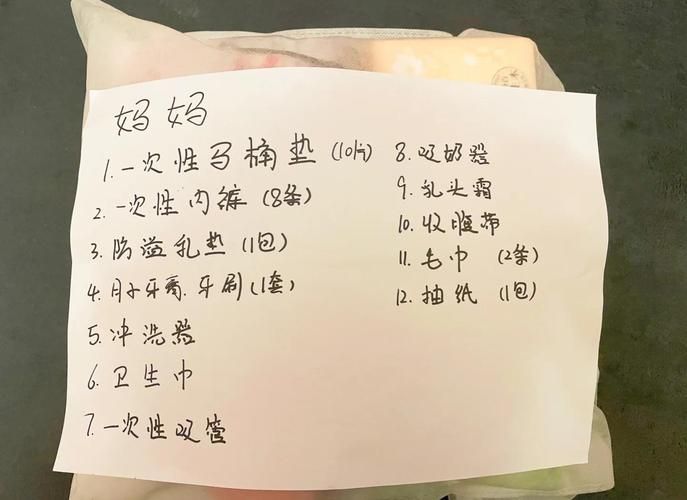 妈妈
1. 一次性马桶垫 (10片)
2. 一次性内裤 (8条)
3. 防溢乳垫 (1包)
4. 月子牙膏、牙刷 (1套)
5. 冲洗器
6. 卫生巾
7. 一次性吸管
8. 吸奶器
9. 乳头霜
10. 收腹带
11. 毛巾 (2条)
12. 抽纸 (1包)